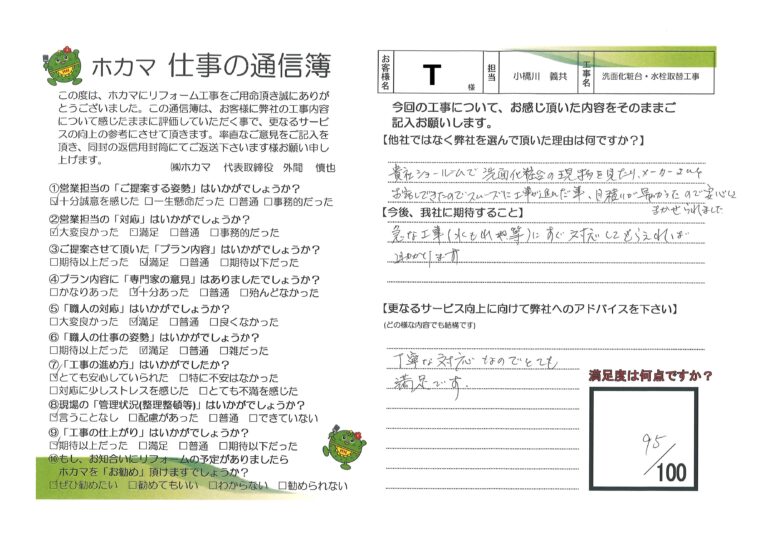 ホカマ 仕事の通信簿
この度は、ホカマにリフォーム工事をご用命頂き誠にありが
とうございました。この通信簿は、お客様に弊社の工事内容
について感じたままに評価していただく事で、更なるサービ
スの向上の参考にさせて頂きます。率直なご意見をご記入を
頂き、同封の返信用封筒にてご返送下さいます様お願い申し
上げます。
㈱ホカマ 代表取締役 外間 慎也
①営業担当の「ご提案する姿勢」はいかがでしょうか?
☑十分誠意を感じた □一生懸命だった □普通 □事務的だった
②営業担当の「対応」はいかがでしょうか?
☑大変良かった □満足 □普通 □事務的だった
③ご提案させて頂いた「プラン内容」はいかがでしょうか?
□期待以上だった ☑満足 □普通 □期待以下だった
④プラン内容に「専門家の意見」はありましたでしょうか?
□かなりあった ☑十分あった □普通 □殆んどなかった
⑤「職人の対応」はいかがでしょうか?
□大変良かった ☑満足 □普通 □良くなかった
⑥「職人の仕事の姿勢」はいかがでしょうか?
□期待以上だった ☑満足 □普通 □雑だった
⑦「工事の進め方」はいかがでしたか?
☑とても安心していられた □特に不安はなかった
□対応に少しストレスを感じた □とても不満を感じた
⑧現場の「管理状況(整理整頓等)」はいかがでしょうか?
☑言うことなし □配慮があった □普通 □できていない
⑨「工事の仕上がり」はいかがでしょうか?
☑期待以上だった □満足 □普通 □期待以下だった
⑩もし、お知合いにリフォームの予定がありましたら
ホカマを「お勧め」頂けますでしょうか?
☑ぜひ勧めたい □勧めてもいい □わからない □勧められない
お客様名 T 様 担当 小橋川 義共 工事名 洗面化粧台・水栓取替工事
今回の工事について、お感じ頂いた内容をそのままご
記入お願いします。
【他社ではなく弊社を選んで頂いた理由は何ですか?】
貴社ショールームで洗面化粧台の現物を見たり、メーカーさんと
お話しできたのでスムーズに工事が進んだ事、見積りが早かったので安心して
まかせられました
【今後、我社に期待すること】
急な工事(水もれ等)にすぐ対応してもらえれば
助かります
【更なるサービス向上に向けて弊社へのアドバイスを下さい】
(どの様な内容でも結構です)
丁寧な対応なのでとても
満足です。
満足度は何点ですか?
95
/100